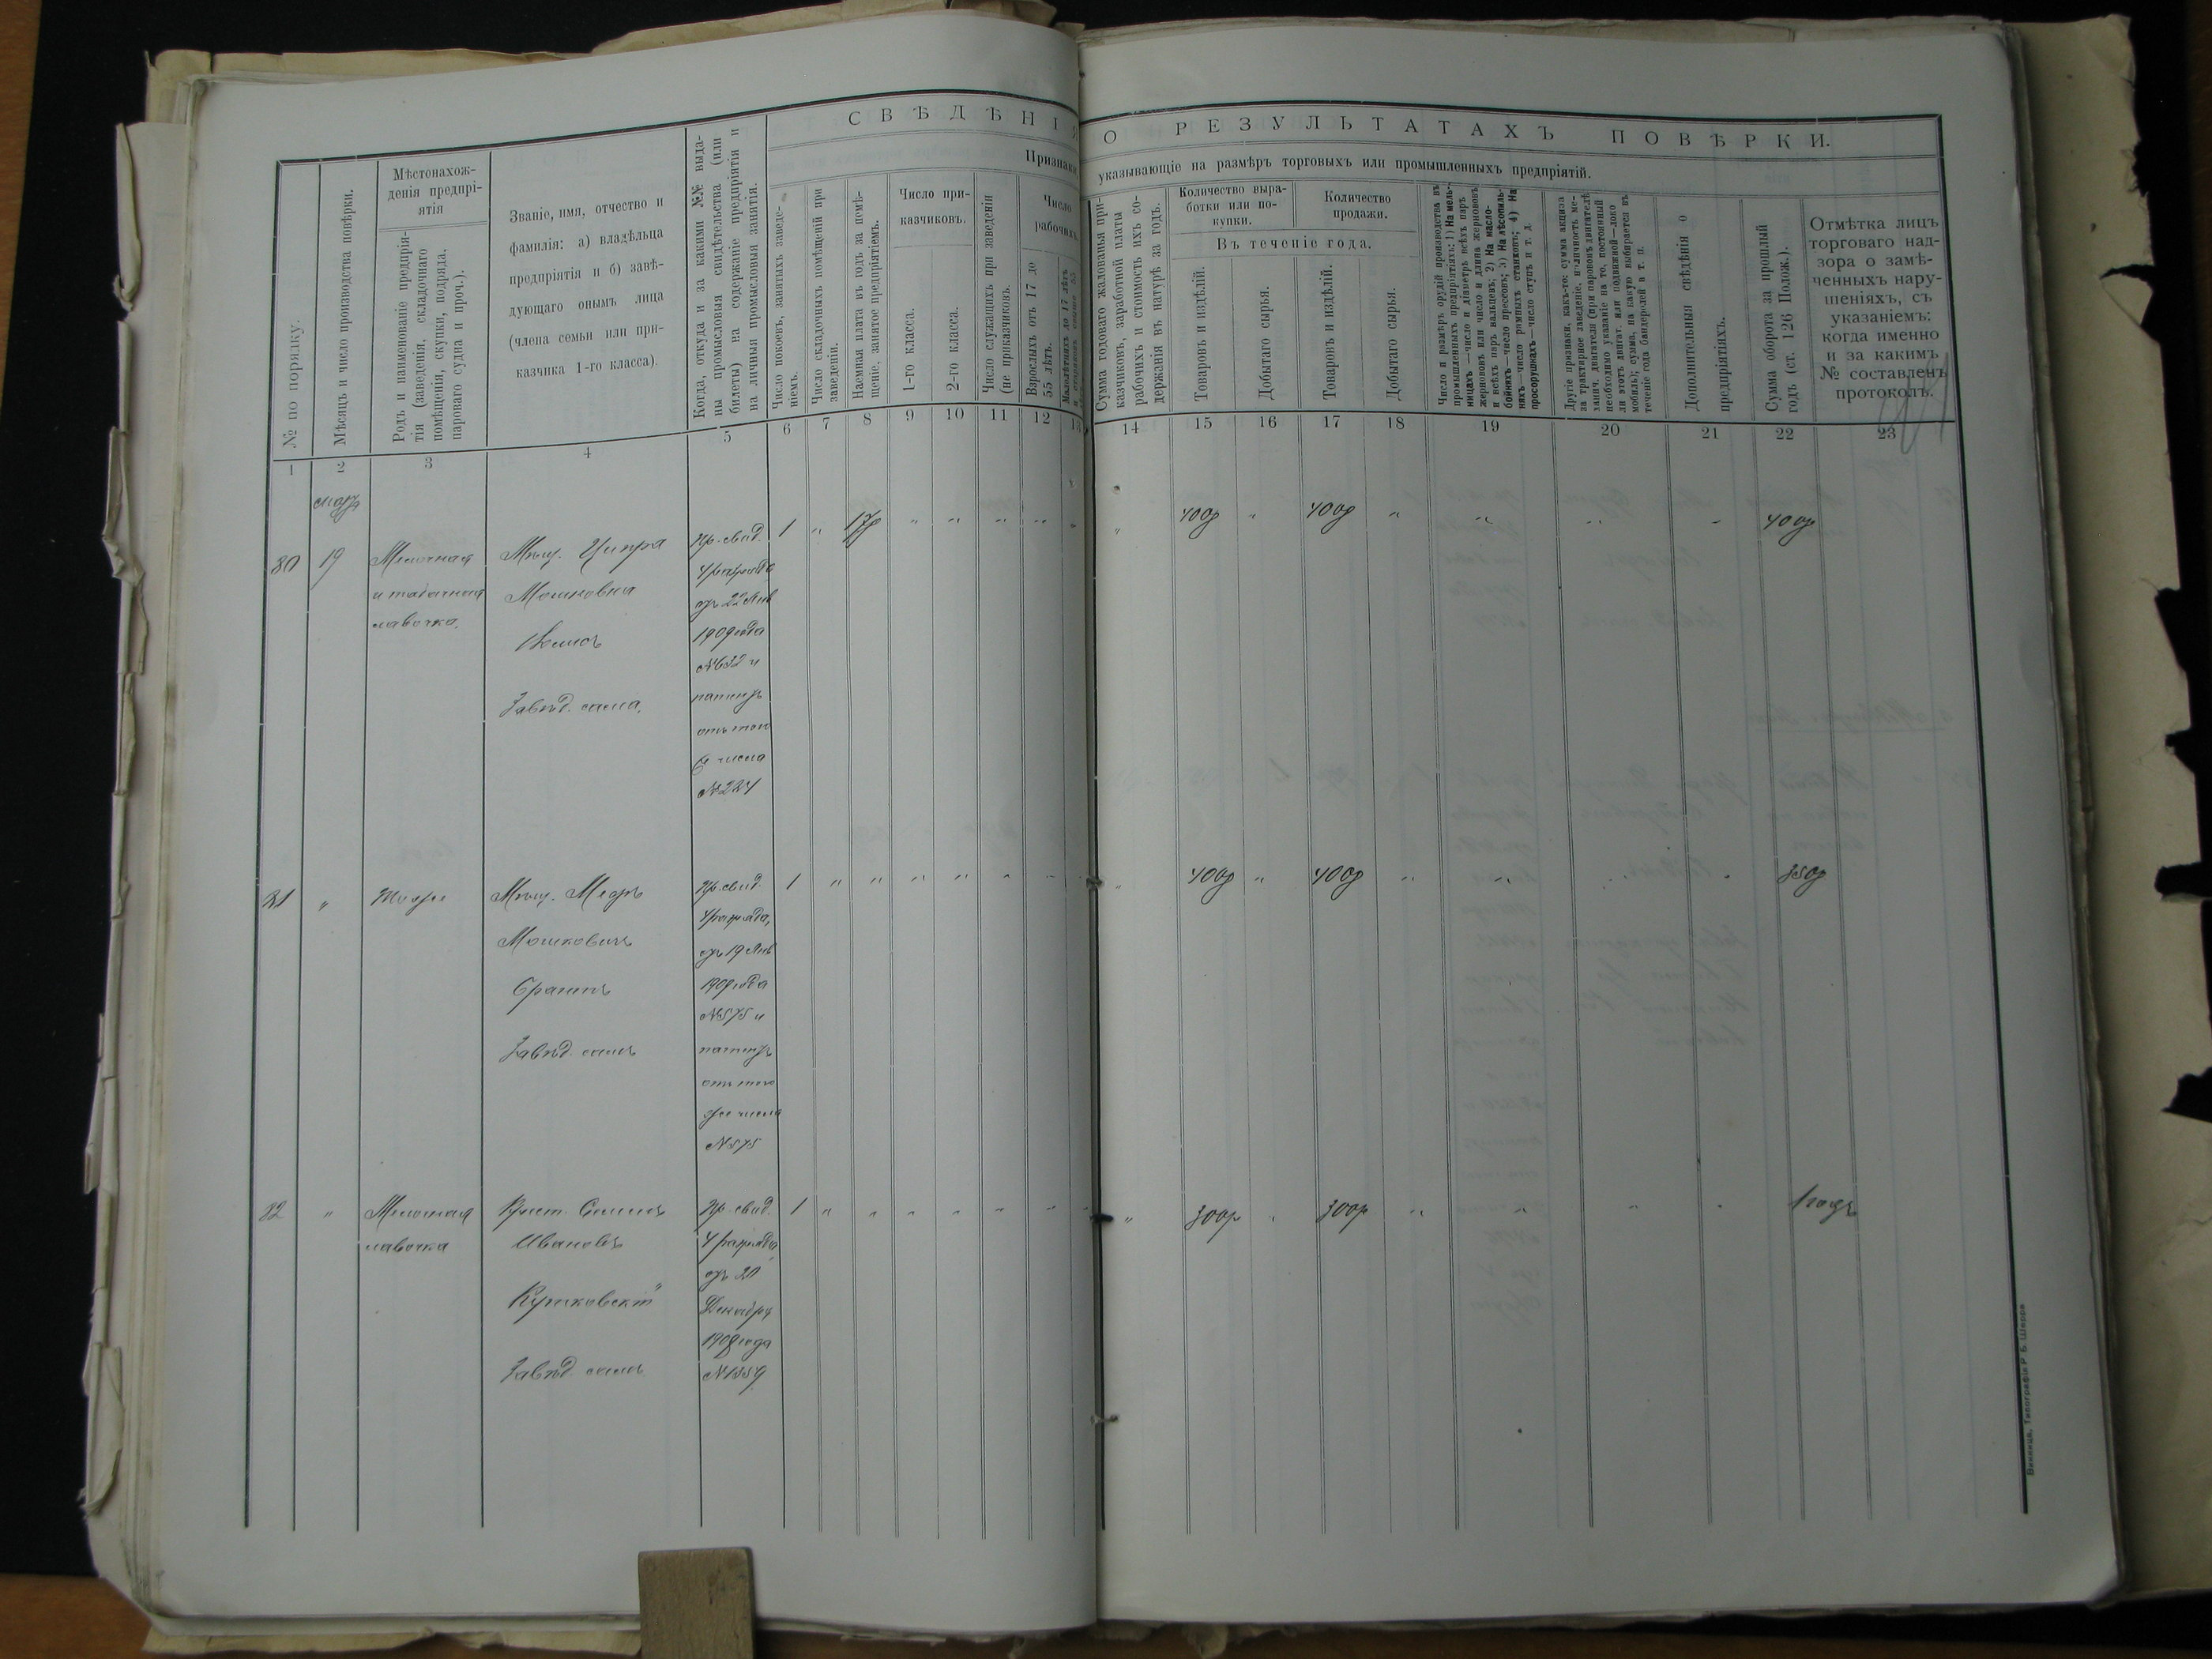 СВѢДѢНІЯ О РЕЗУЛЬТАТАХЪ ПОВѢРКИ.
Признаки указывающіе на размѣръ торговыхъ или промышленныхъ предпріятій.
№ по порядку.
Мѣсяцъ и число производства повѣрки.
Мѣстонахож-
денія предпрі-
ятія
Родъ и наименованіе предпрія-
тія (заведенія, складочнаго
помѣщенія, скупки, подряда,
пароваго судна и проч.).
Званіе, имя, отчество и
фамилія: а) владѣльца
предпріятія и б) завѣ-
дующаго онымъ лица
(члена семьи или при-
казчика 1-го класса).
Когда, откуда и за какими №№ выда-
ны промысловыя свидѣтельства (или
билеты) на содержаніе предпріятія и
на личныя промысловыя занятія.
Число покоевъ, занятыхъ заведе-
ніемъ.
Число складочныхъ помѣщеній при
заведеніи.
Наемная плата въ годъ за помѣ-
щеніе, занятое предпріятіемъ.
Число при-
казчиковъ.
1-го класса.
2-го класса.
Число служащихъ при заведеніи
(не приказчиковъ.
Число
рабочихъ.
Взрослыхъ отъ 17 до
55 лѣтъ.
Сумма годоваго жалованья при-
казчиковъ, заработной платы
рабочихъ и стоимость ихъ со-
держанія въ натурѣ за годъ.
Количество выра-
ботки или по-
купки.
Количество
продажи.
Въ теченіе года.
Товаровъ и издѣлій.
Добытаго сырья.
Товаровъ и издѣлій.
Добытаго сырья.
Число и размѣръ орудій производства въ
промышленныхъ предпріятіяхъ: 1) На мель-
ницахъ—число и діаметръ всѣхъ паръ
жернововъ или число и длина жернововъ
и всѣхъ паръ вальцевъ; 2) На масло-
бойняхъ—число прессовъ; 3) На лѣсопиль-
няхъ—число рамныхъ станковъ; 4) На
просорушкахъ—число ступъ и т. д.
Другіе признаки, какъ-то: сумма акциза
за трактирное заведеніе, наличность ме-
ханич. двигателя (при паровомъ двигателѣ
необходимо указаніе на то, постоянный
ли этотъ двигат. или подвижной—локо
мобиль); сумма, на какую выбирается въ
теченіе года бандеролей и т. п.
Дополнительныя свѣдѣнія о
предпріятіяхъ.
Сумма оборота за прошлый
годъ (ст. 126 Полож.).
Отмѣтка лицъ
торговаго над-
зора о замѣ-
ченныхъ нару-
шеніяхъ, съ
указаніемъ:
когда именно
и за какимъ
№ составленъ
протоколъ.
1 2 3 4 5 6 7 8 9 10 11 12 13 14 15 16 17 18 19 20 21 22 23
мартъ
80 19 Мелочная
и табачная
лавочка.
Мѣщ. Ципра
Мошковна
Завѣд. сама.
Пр. свид.
4 разряда
отъ 22 Янв
1909 года
№ 632 и
патентъ
отъ того
числа
№ 224
1 " " " " " " " 400р " 400р " " " " 400р
81 " тоже
Мѣщ. Меръ
Мошковичъ
Завѣд. самъ
Пр. свид.
4 разряда,
отъ 19 Янв
1909 года
№ 575 и
патентъ
отъ того
же числа
№ 575
1 " " " " " " " 400р " 400р " " " " 350р
82 " Мелочная
лавочка
Крест.
Ивановъ
Завѣд. самъ
Пр. свид.
4 разряда
отъ 20
Декабря
1908 года
№ 1559
1 " " " " " " " 300р " 300р " " " " 1 годъ
Винница, Типографія Р. Б. Шерра